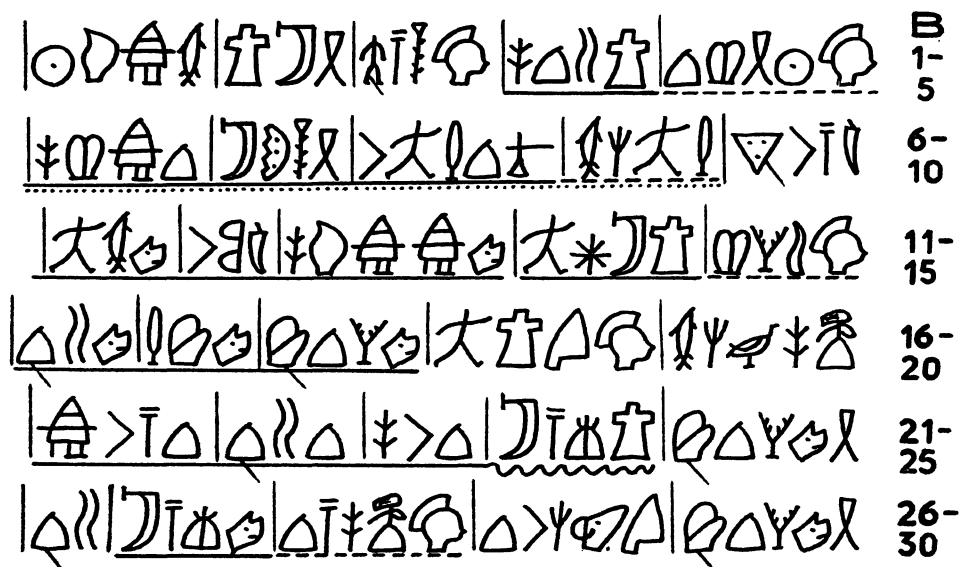 B
1-5 𐇑𐇛𐇥𐇷𐇖|𐇪𐇼𐇖𐇲|𐇑𐇴𐇦𐇔𐇽|𐇥𐇨𐇪|𐇰𐇧𐇣𐇛|
6-10 𐇟𐇦𐇡𐇺𐇽|𐇜𐇐𐇶𐇰|𐇞𐇖𐇜𐇐𐇡|𐇥𐇴𐇹𐇨|𐇖𐇧𐇷𐇲|
11-15 𐇑𐇩𐇳𐇷|𐇪𐇨𐇵𐇐|𐇬𐇧𐇧𐇣𐇲|𐇟𐇝𐇡|𐇬𐇰𐇐|
16-20 𐇕𐇲𐇯𐇶𐇰|𐇑𐇘𐇪𐇐|𐇬𐇳𐇖𐇗𐇽|𐇬𐇗𐇜|𐇬𐇼𐇖𐇽|
21-25 𐇥𐇬𐇳𐇖𐇗𐇽|𐇪𐇱𐇦𐇨|𐇖𐇡𐇲|𐇖𐇼𐇖𐇽|𐇖𐇦𐇡𐇧|
26-30 𐇥𐇬𐇳𐇖𐇗𐇽|𐇘𐇭𐇶𐇡𐇖|𐇑𐇕𐇲𐇦𐇖|𐇬𐇱𐇦𐇨|𐇼𐇖𐇽|